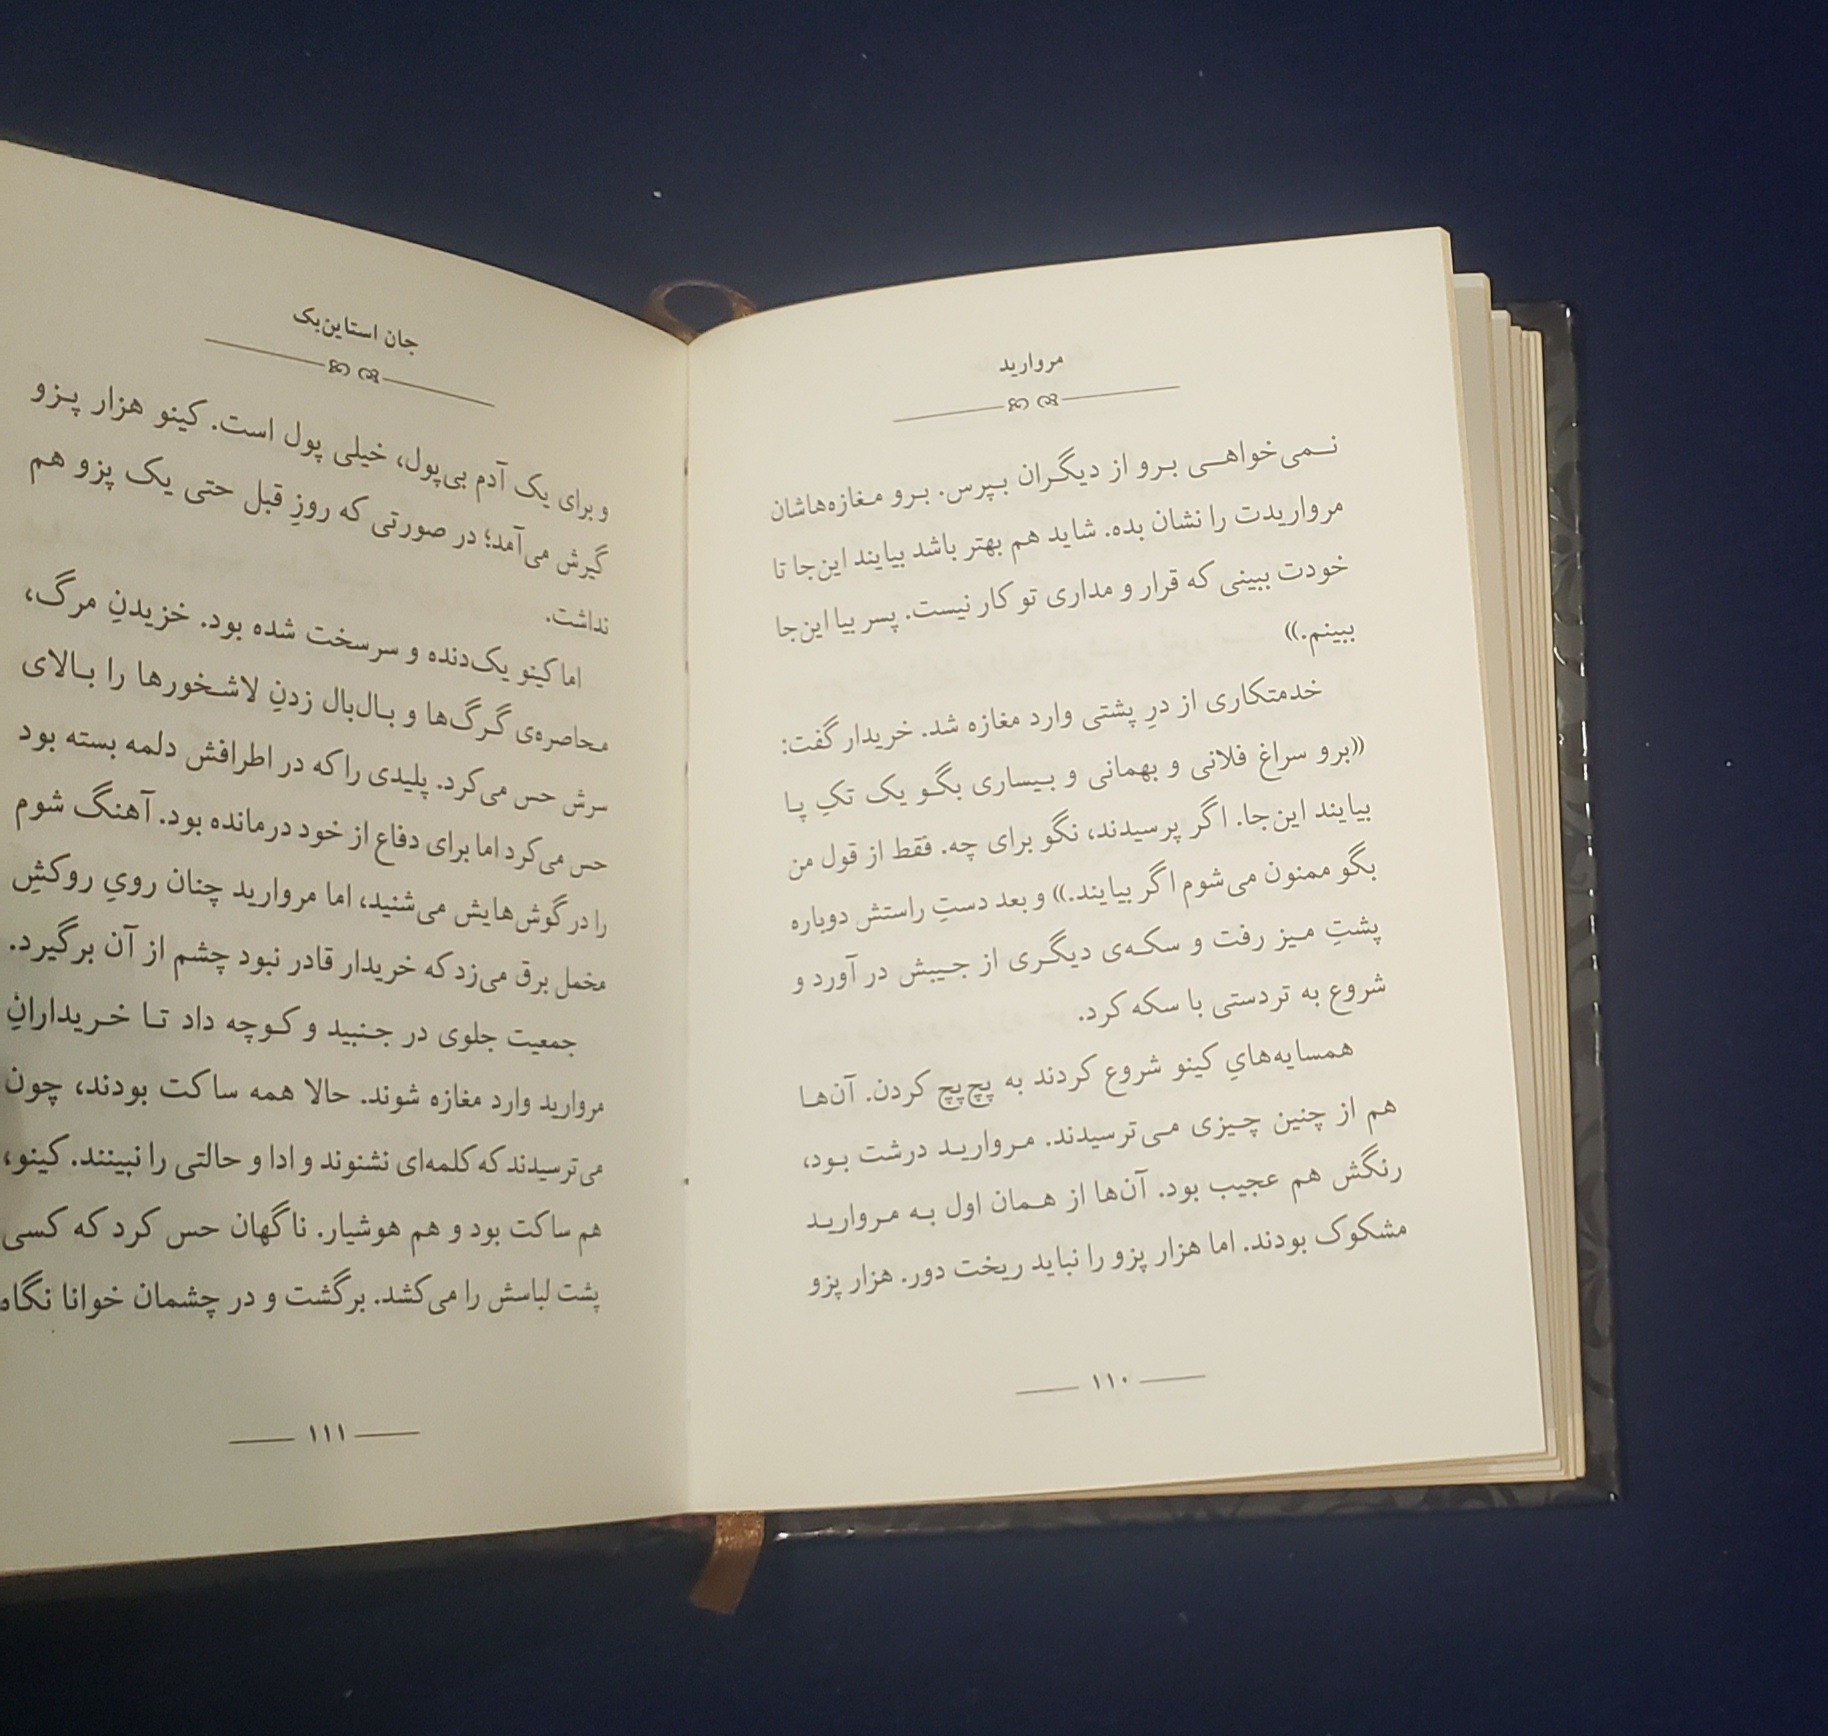 مروارید
نمی‌خواهی برو از دیگران بپرس. برو مغازه‌هاشان
مرواریدت را نشان بده. شاید هم بهتر باشد بیایند این‌جا تا
خودت ببینی که قرار و مداری تو کار نیست. پسر بیا این‌جا
ببینم.»
خدمتکاری از درِ پشتی وارد مغازه شد. خریدار گفت:
«برو سراغ فلانی و بهمانی و بیساری بگو یک تکِ پا
بیایند این‌جا. اگر پرسیدند، نگو برای چه. فقط از قول من
بگو ممنون می‌شوم اگر بیایند.» و بعد دستِ راستش دوباره
پشتِ میز رفت و سکه‌ی دیگری از جیبش در آورد و
شروع به تردستی با سکه کرد.
همسایه‌هایِ کینو شروع کردند به پچ‌پچ کردن. آن‌ها
هم از چنین چیزی می‌ترسیدند. مروارید درشت بود،
رنگش هم عجیب بود. آن‌ها از همان اول به مروارید
مشکوک بودند. اما هزار پزو را نباید ریخت دور. هزار پزو
۱۱۰
جان استاین‌بک
و برای یک آدم بی‌پول، خیلی پول است. کینو هزار پزو
گیرش می‌آمد؛ در صورتی که روزِ قبل حتی یک پزو هم
نداشت.
اما کینو یک‌دنده و سرسخت شده بود. خزیدنِ مرگ،
محاصره‌ی گرگ‌ها و بال‌بال زدنِ لاشخورها را بالای
سرش حس می‌کرد. پلیدی را که در اطرافش دلمه بسته بود
حس می‌کرد اما برای دفاع از خود درمانده بود. آهنگ شوم
را در گوش‌هایش می‌شنید، اما مروارید چنان رویِ روکشِ
مخمل برق می‌زد که خریدار قادر نبود چشم از آن برگیرد.
جمعیت جلوی در جنبید و کوچه داد تا خریدارانِ
مروارید وارد مغازه شوند. حالا همه ساکت بودند، چون
می‌ترسیدند که کلمه‌ای نشنوند و ادا و حالتی را نبینند. کینو،
هم ساکت بود و هم هوشیار. ناگهان حس کرد که کسی
پشت لباسش را می‌کشد. برگشت و در چشمان خوانا نگاه
۱۱۱